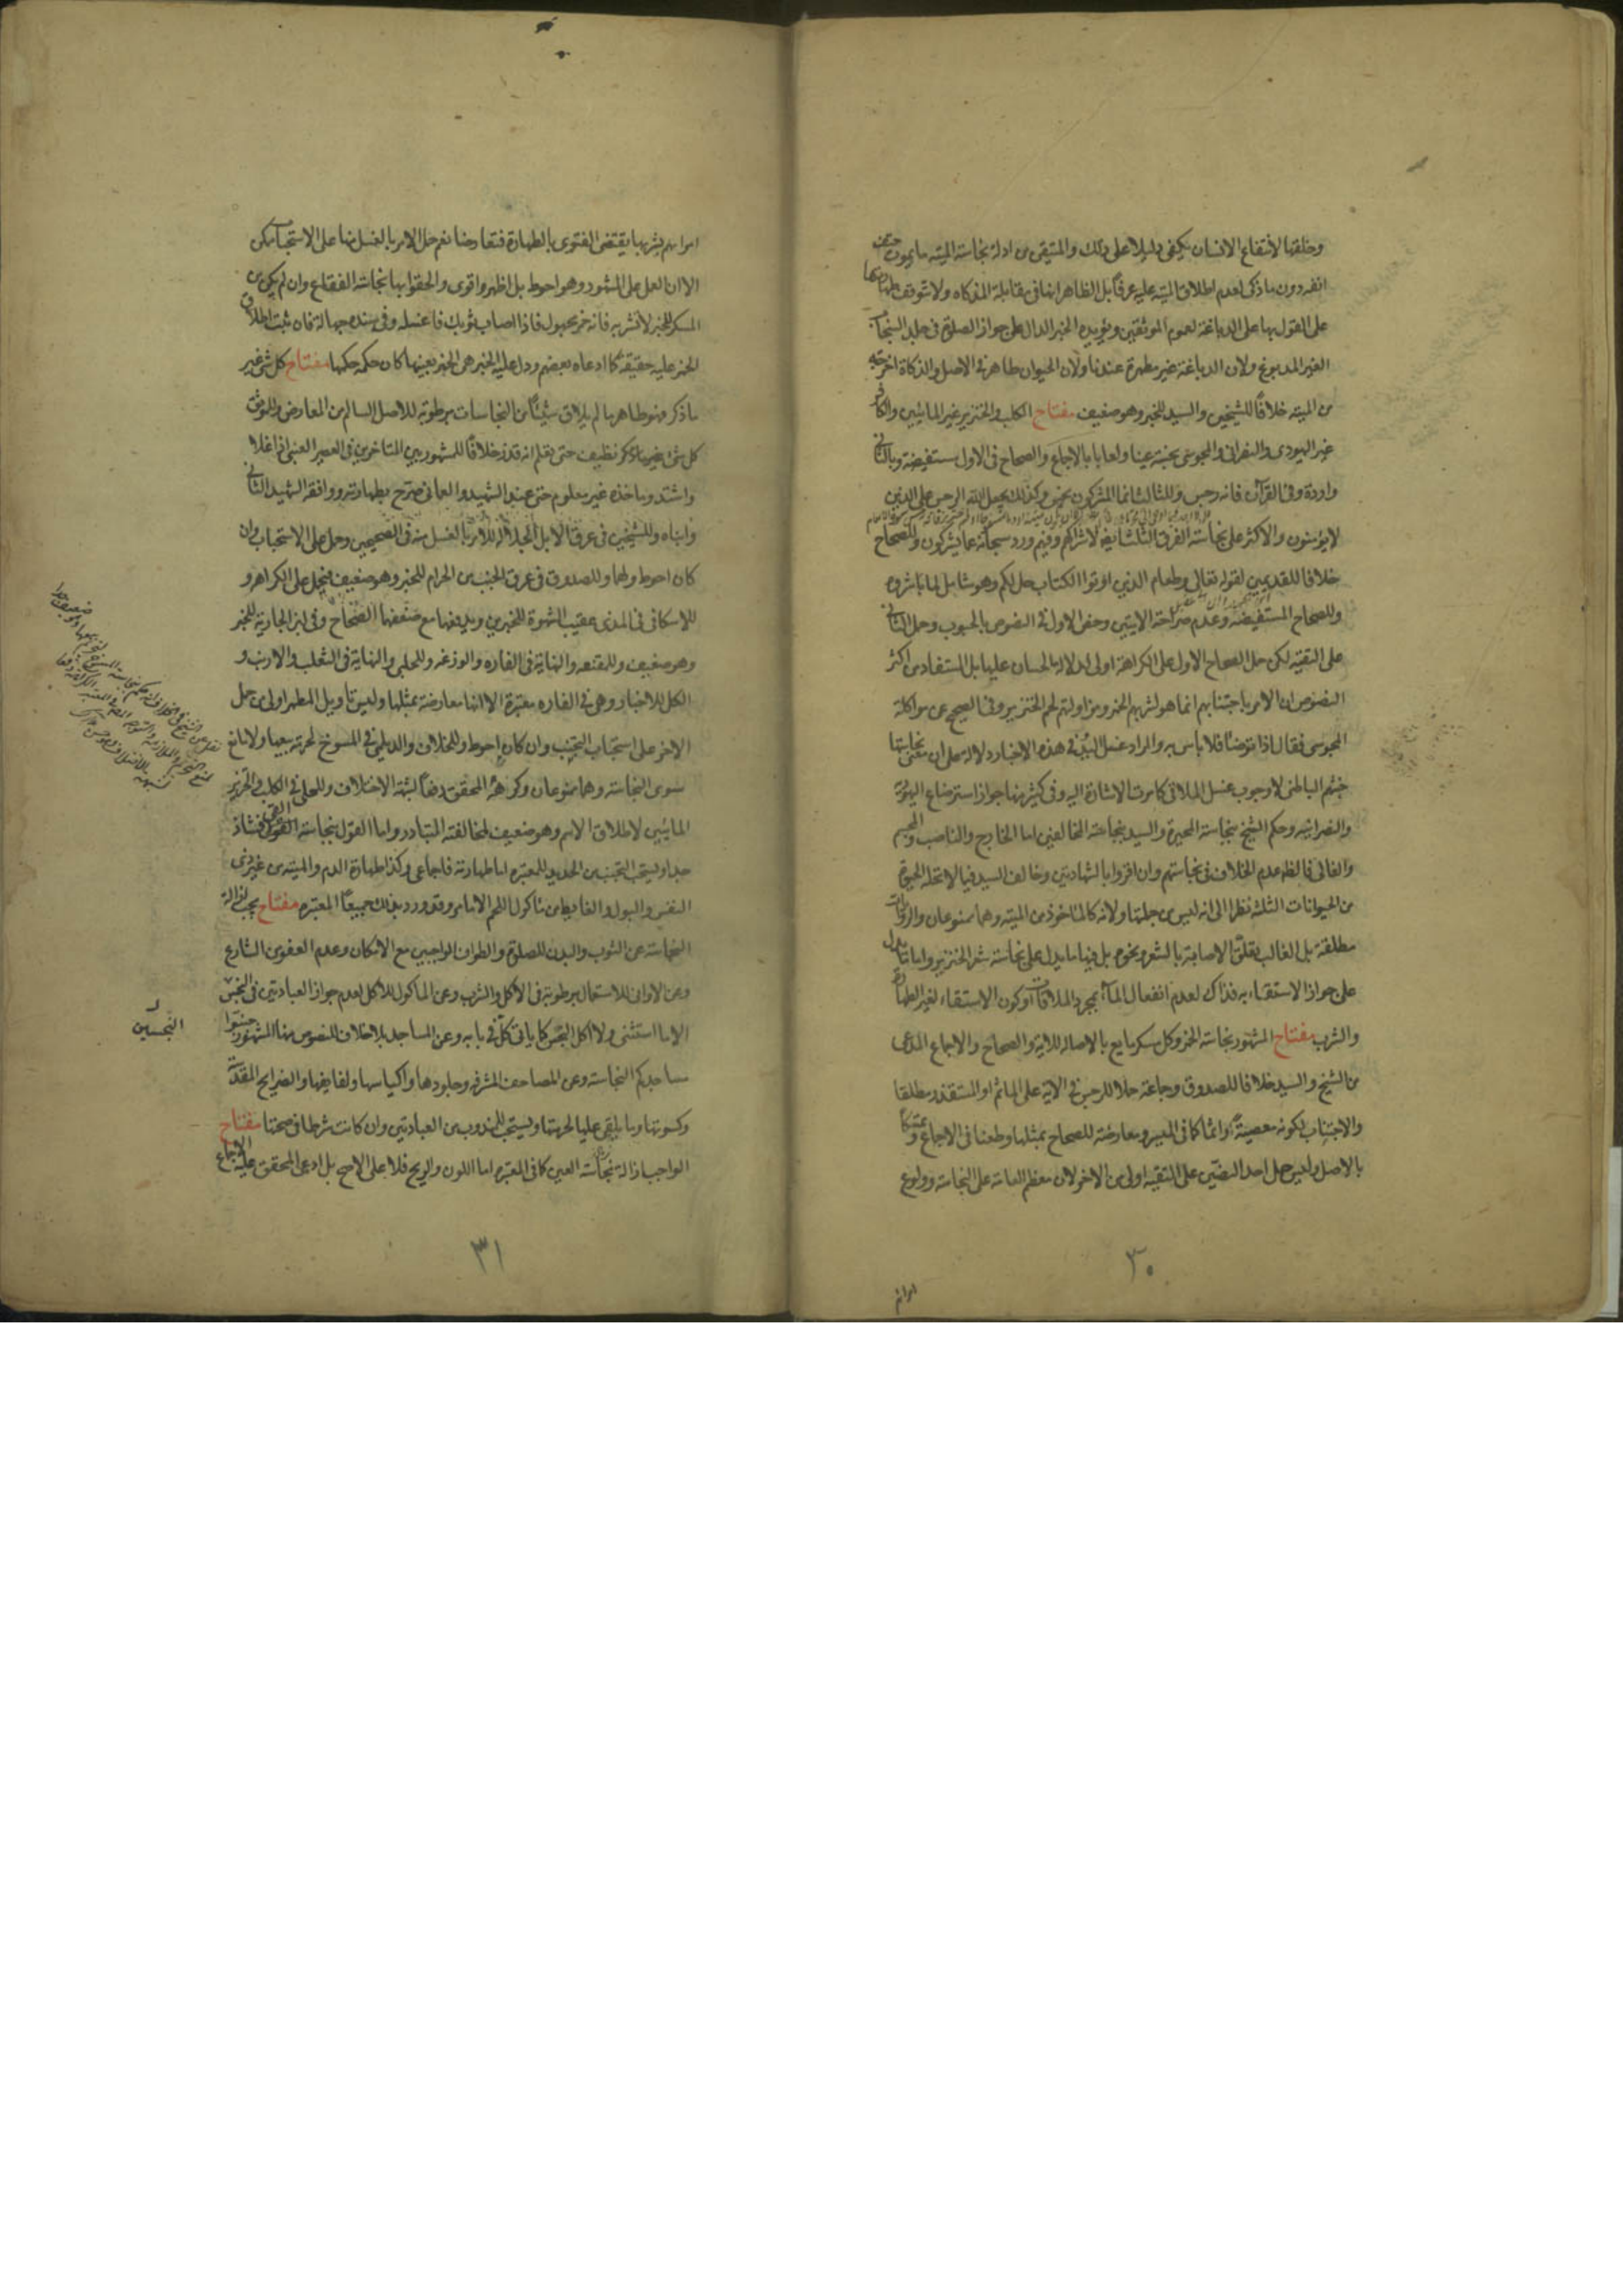 وخلقها لانتفاع الانسان يكفى دليلا على ذلك والمتيقن من ادلة نجاسة الميته ما يموت حتف
انفه دون ما ذكى لعدم اطلاق الميته عليه عرفا بل الظاهر انها فى مقابلة المذكاه ولا تتوقف طهارتها
على القول بها على الدباغة لعموم الموثقين ويؤيده الخبر الدال على جواز الصلوة فى جلد السنجاب
الغير المدبوغ ولان الدباغة غير مطهرة عندنا ولان الحيوان طاهر فى الاصل والذكاة اخرجته
من الميته خلافا للشيخين والسيد للخبر وهو ضعيف مفتاح الكلب والخنزير غير المائيين والكافر
غير اليهودى والنصرانى والمجوسى نجسة عينا ولعابا بالاجماع والصحاح فى الاول مستفيضة وبالثانى
واردة وفى القرآن فانه رجس وللثالث انما المشركون نجس وكذلك يجعل الله الرجس على الذين
لا يؤمنون والاكثر على نجاسة الفرق الثلث ايضا لاشراكهم وفيهم ورد سبحانه عما يشركون وللصحاح
خلافا للقديمين لقوله تعالى وطعام الذين اوتوا الكتاب حل لكم وهو شامل لما باشروه
وللصحاح المستفيضة وعدم صراحة الايتين وخص الاول فى النصوص بالحبوب وحمل الثانى
على التقية لكن حمل الصحاح الاول على الكراهة اولى لدلالة الحسان عليها بل المستفاد من اكثر
النصوص ان الامر باجتنابهم انما هو لشربهم الخمر ومزاولتهم لحم الخنزير وفى الصحيح عن مواكلة
المجوسى فقال اذا توضأ فلا باس به والمراد غسل اليد فى هذه الاخبار دلالة على ان معنى نجاستها
خبثهم الباطنى لا وجوب غسل الملاقى كما مرت الاشارة اليه وفى كثير منها جواز استرضاع اليهودية
والنصرانية وحكم الشيخ بنجاسة المجبرة والسيد بنجاسة المخالفين اما الخارج والناصب والمجسم
والغالى فالظاهر عدم الخلاف فى نجاستهم وان اقروا بالشهادتين وخالف السيد فيما لا تحله الحيوة
من الحيوانات الثلثة نظرا الى انه ليس من جملتها ولانه كالماخوذ من الميته وهما ممنوعان والروايات
مطلقة بل الغالب تعلق الاصابة بالشعر ونحوه بل فيها ما يدل على نجاسة شعر الخنزير واما ما دل
على جواز الاستقاء به فذاك لعدم انفعال الماء بمجرد الملاقات او كون الاستقاء لغير الطهارة
والشرب مفتاح المشهور نجاسة الخمر وكل مسكر مايع بالاصاله للاية والصحاح والاجماع المدعى
من الشيخ والسيد خلافا للصدوق وجماعة حملا للرجس فى الاية على الماثم او المستقذر مطلقا
والاجتناب لكونه معصية واثما كما فى الميسر ومعارضة للصحاح بمثلها وطعنا فى الاجماع وتمسكا
بالاصل وليس حمل احد النصين على التقية اولى من الاخر لان معظم العامة على النجاسة وولوع
امرائهم
٣٠
امرائهم بشربها يقتضى الفتوى بالطهارة فتعارضا نعم حمل الامر بالغسل منها على الاستحباب ممكن
الا ان العمل على المشهور وهو احوط بل اظهر واقوى والحقوا بها نجاسة الفقاع وان لم يكن من
المسكر للخبر لا تشربه فانه خمر مجهول فاذا اصاب ثوبك فاغسله وفى سنده جهالة فان ثبت اطلاق
الخمر عليه حقيقة كما ادعاه بعضهم ودل عليه الخبر هى الخمر بعينها كان حكمه حكمها مفتاح كل شئ غير
ما ذكر فهو طاهر ما لم يلاق شيئا من النجاسات برطوبة للاصل السالم من المعارض وللموثق
كل شئ نظيف حتى تعلم انه قذر خلافا للمشهور بين المتاخرين فى العصير العنبى اذا غلا
واشتد وماخذه غير معلوم حتى عند الشهيد والعمانى صرح بطهارته ووافقه الشهيد الثانى
وابناه وللشيخين فى عرق الابل الجلالة للامر بالغسل منه فى الصحيحين وحمل على الاستحباب وان
كان احوط ولهما وللصدوق فى عرق الجنب من الحرام للخبر وهو ضعيف فيحمل على الكراهة و
للاسكافى فى المذى عقيب الشهوة للخبرين ويدفعهما مع ضعفهما الصحاح وفى لبن الجارية للخبر
وهو ضعيف وللمقنعه والنهاية فى الفاره والوزغه وللحلبى والنهاية فى الثعلب والارنب و
الكل للاخبار وهى فى الفاره معتبرة الا انها معارضة بمثلها وليس تاويل المطهر اولى من حمل
الاخر على استحباب التجنب وان كان احوط وللخلاف والديلمى فى المسوخ لحرمة بيعها ولا مانع
سوى النجاسة وهما ممنوعان وكرهه المحقق دفعا لشبهة الاختلاف وللحلى فى الكلب والخنزير
المائيين لاطلاق الاسم وهو ضعيف لمخالفته المتبادر واما القول بنجاسة القئ فشاذ
جدا ويستحب التجنب من الحديد للمعتبره اما طهارته فاجماعى وكذا طهارة الدم والميته من غير ذى
النفس والبول والغايط من ماكول اللحم الا ما مر وقد ورد بذلك جميعا المعتبره مفتاح يجب ازالة
النجاسة عن الثوب والبدن للصلوة والطواف الواجبين مع الامكان وعدم العفو من الشارع
وعن الاوانى للاستعمال برطوبة فى الاكل والشرب وعن الماكول للاكل لعدم جواز العبادتين فى النجس
الا ما استثنى ولا اكل النجس كما ياتى كل فى بابه وعن المساجد بلا خلاف للنصوص منها المشهور جنبوا
مساجدكم النجاسة وعن المصاحف المشرفه وجلودها واكياسها ولفايفها والضرايح المقدسة
وكسوتها وما يلقى عليها لحرمتها ويستحب للمندوب من العبادتين وان كانت شرطا فى صحتها مفتاح
الواجب ازالة نجاسة العين كما فى المعتبره اما اللون والريح فلا على الاصح بل ادعى المحقق عليه الاجماع
النجسين
٣١